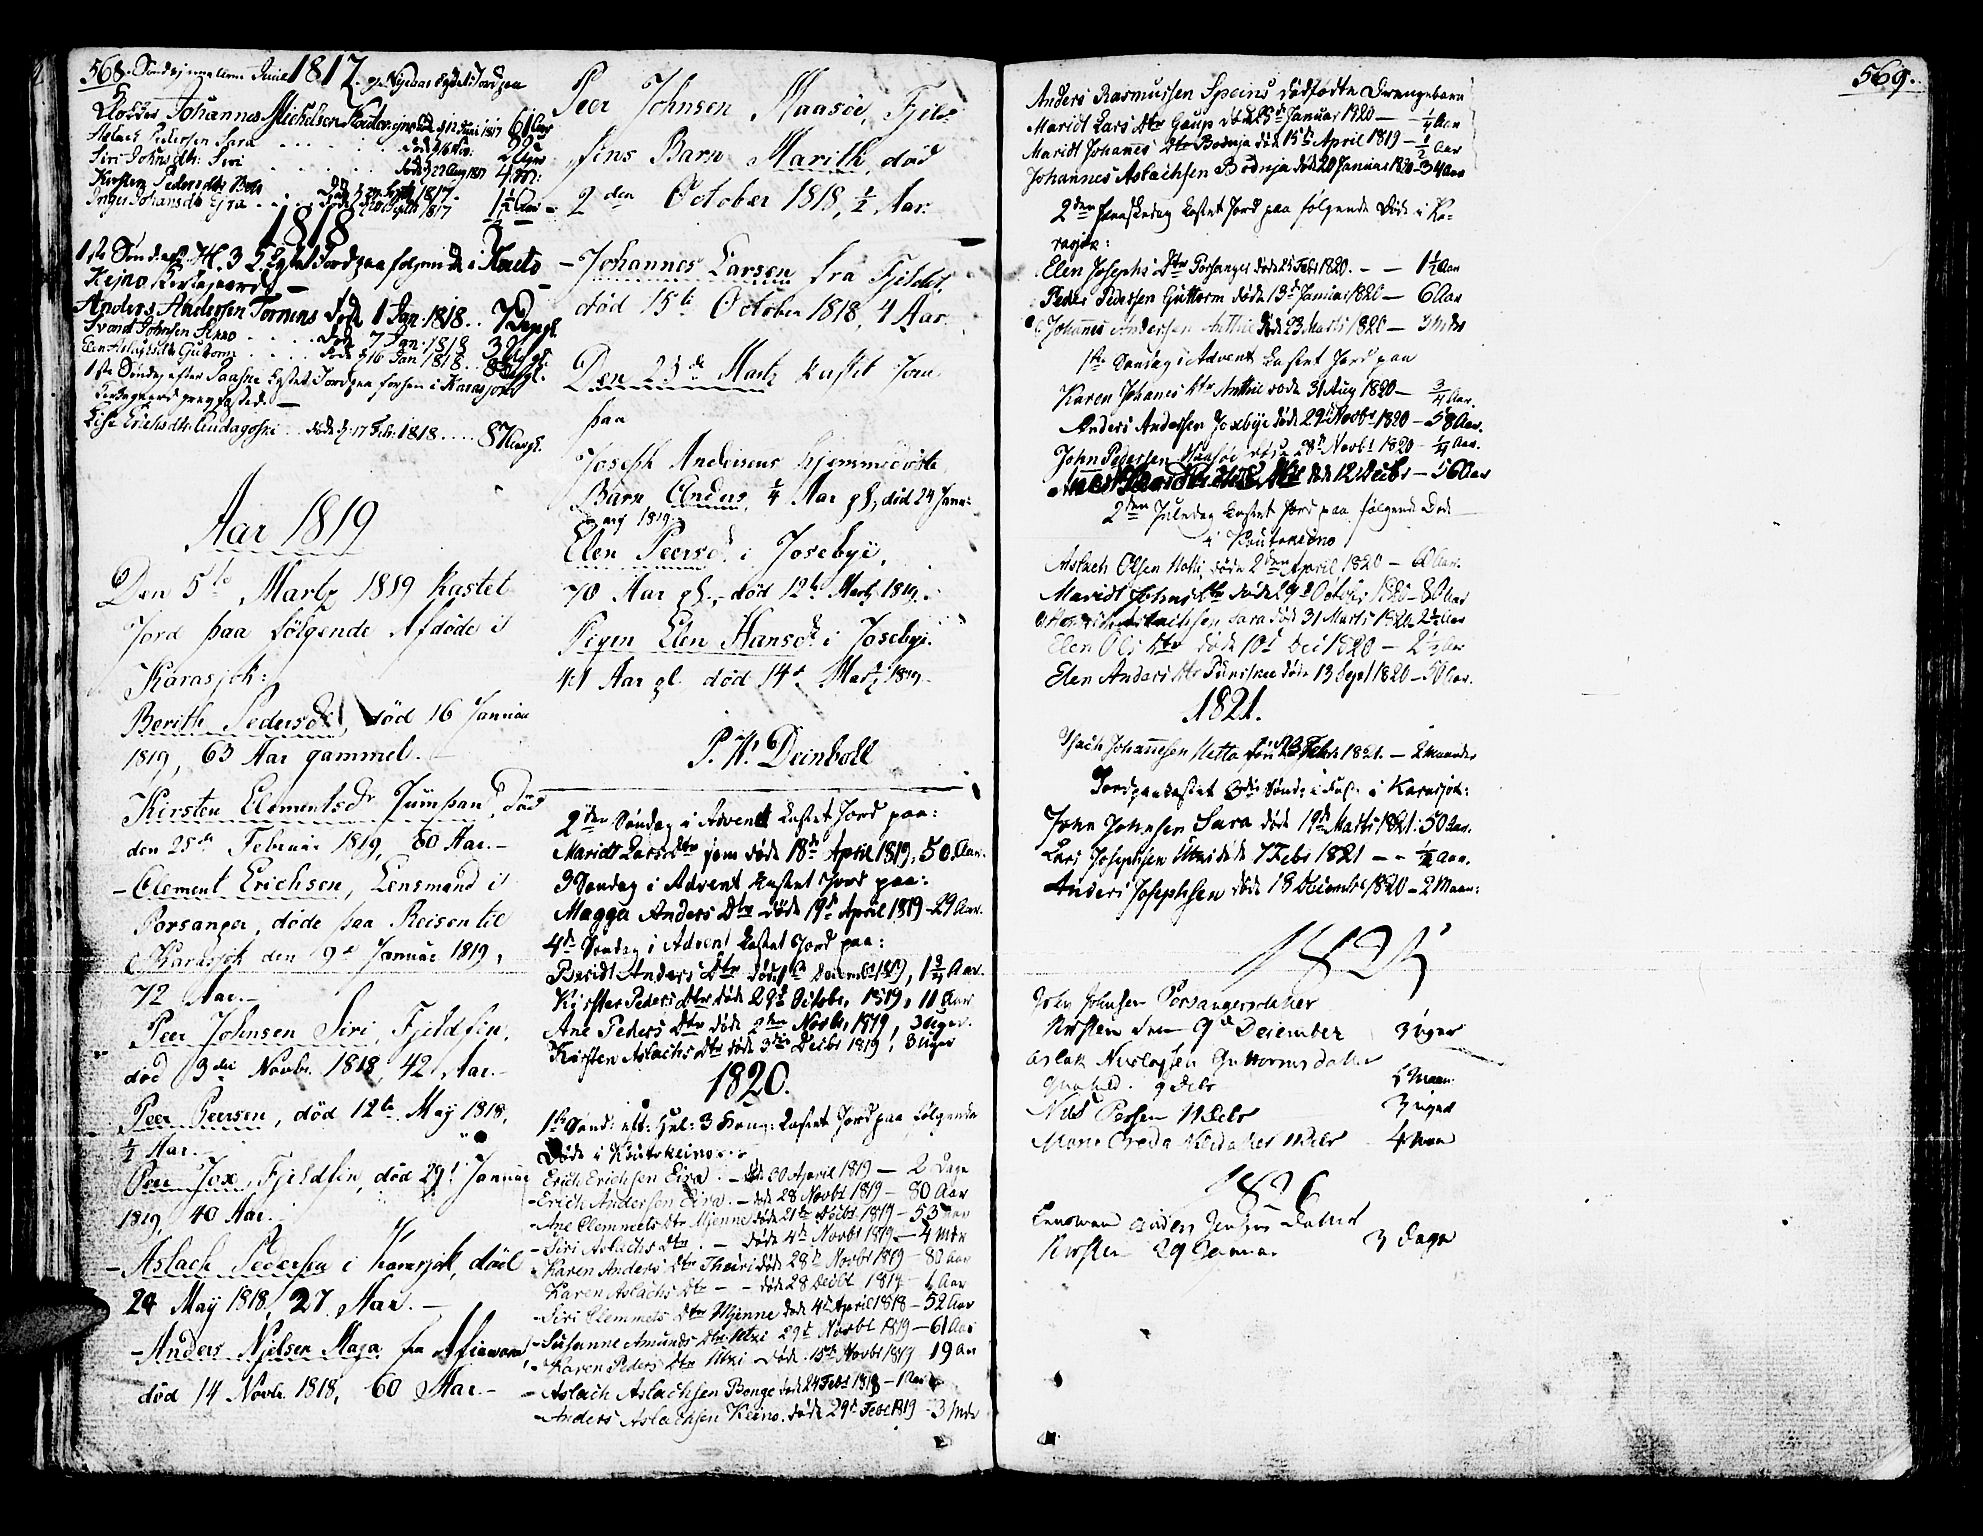 568.
1817.
Johannes Michelsen
61 Aar
Aslach Pedersen Sara
Siri Johns dtr: Siri
død 27 Aug 1817 4 M:
Kirsten Peders dtr
1818
1ste Søndag H. 3 K. kastet Jord paa følgende i Kouto
Kejno Kirkegaard
Anders Andersen Tornens død 1 Jan: 1818..
død 7 Jan: 1818
død 16 Jan: 1818
1ste Søndag efter Paaske kastet Jord paa i Karasjok
død d: 17 Feb: 1818 .... 87 Aar gl.
Aar 1819
Den 5te Martz 1819 kastet
Jord paa følgende Afdøde i
Karasjok:
Berith Pedersdr, død 16 Januar
1819, 63 Aar gammel.
Kirsten Clementsdr Jumpan, død
den 25de Februar 1819, 60 Aar. -
- Clement Erichsen, Lensmand i
Porsanger, døde paa Reisen til
Karasjok den 9de Januar 1819,
72 Aar. -
Peer Johnsen Siri, Fjeldfin,
død 3die Novbr. 1818, 42 Aar. -
Peer Peersen, død 12te May 1818,
1/2 Aar. -
Peer Jox, Fjeldfin, død 29. Januar
1819, 40 Aar.
- Aslach Pedersen i Karasjok, død
24 May 1818, 27 Aar. -
- Anders Njelsen Maja fra
død 14 Novbr. 1818, 60 Aar. -
Peer Johnsen Maasøe, Fjeld-
fins Barn Marith, død
2den October 1818, 1/2 Aar.
- Johannes Larsen fra Fjeldet,
død 15te October 1818, 4 Aar.
Den 23de Martz kastet Jord
paa
Joseph Andersens hjemmedøbte
Barn Anders, 1/4 Aar gl, død 24 Janu-
arij 1819.
Elen Peersdr. i Josebye,
70 Aar gl., død 12te Martz 1819.
Pigen Elen Hansdr. i Josebye.
41 Aar gl. død 14de Martz 1819.
P. W. Deinboll
2den Søndag i Advent kastet Jord paa:
Maridt Larsdtr som døde 18de April 1819, 50 Aar.
3 Søndag i Advent kastet Jord paa:
Magga Anders Dtr døde 19de April 1819 - 29 Aar.
4de Søndag i Advent kastet Jord paa:
Beridt Anders Dtr døde 1ste December 1819, 1 3/4 Aar.
Kirsten Peders Dtr døde 29de Octobr. 1819, 11 Aar
Ane Peders Dtr døde 2den Novbr. 1819, 3 Uger.
Kirsten Aslachs Dtr døde 3die Decbr 1819, 3 Uger
1820.
1ste Sønd: eft: Hel: 3 Kong: kastet Jord paa følgende
Døde i Koutokeino..
Erich Erichsen Eira. - døde 20 April 1819 - 2 Dage
- Erich Andersen Eira. - døde 28 Novbr 1819 - 80 Aar
- Ane Clemmets Dtr Mjenne døde 21de 1819 - 53 Aar
- Siri Aslachs Dtr. - døde 4de Novbr 1819 - 4 Mdr
- Karen Anders Dtr Theuri døde 28de Novbr 1819 - 80 Aar
Karen Aslachs Dtr - - døde 28 Decbr 1819 - 1 Aar
- Siri Clemmets Dtr Mjenne døde 4de April 1818 - 52 Aar
- Susanne Amunds Dtr Utzi 29de Novbr 1819 - 61 Aar
- Karen Peders Dtr Utzi døde. 15de Novbr 1819 19 Aar
- Aslach Aslachsen Bongo døde 24 Febr 1818 - 1 Aar
- Anders Aslachsen Keino. døde 29de Febr 1819 - 3 Mdr
569.
Anders Rasmussen Speins dødfødte Drengebarn
Maridt Lars Dtr Gaup døde 25de Januar 1820 - - 1/4 Aar
Maridt Johannes Dtr Bodnja døde 15de April 1819 - 1/2 Aar
Johannes Aslachsen Bodnja døde 20 Januar 1820 - 34 Aar
2den Paaskedag kastet Jord paa følgende Døde i Ka-
rasjok:
Elen Josephs Dtr Porsanger døde 25 Febr 1820. - - 1 1/2 Aar
Peder Pedersen Guttorm døde 13de Januar 1820 - 6 Aar
Johannes Andersen Anthie døde 23 Marts 1820 - 3 Mdr
1ste Søndag i Advent kastet Jord paa
Karen Johanes Dtr Anthie døde 31 Aug 1820 - 3/4 Aar.
Anders Andersen Josebye døde 29de Novbr 1820 - 58 Aar.
John Pedersen døde 28de Novbr 1820 - 1/4 Aar.
døde 12 Decbr - 56 Aar
2den Juledag kastet Jord paa følgende Døde
i Koutokeino
Aslach Olsen døde 2den April 1820 - 60 Aar.
Maridt Johns Dtr døde 29de Octobr 1820 - 80 Aar
Aslachsen Sara død 31 Marts 1820 2 1/2 Aar
Elen Ols Dtr døde 10de Dec 1820 - 2 1/2 Aar
Elen Anders Dtr døde 13 Sept 1820 - 50 Aar.
1821.
Isach Johannesen Netto døde 23 Febr 1821. - 2 Maaneder
Jordpaakastet 3die Sønd: i Fast: i Karasjok:
John Johnsen Sara døde 19de Marts 1821. 50 Aar.
Lars Josephsen Utzi døde 7 Febr 1821 - - 1/4 Aar.
Anders Josephsen døde 18 December 1820 - 2 Maan:
1825
John Johnsen Porsangers datter
Kirsten den 9de December 3 uger
Aslak Guttorms datter
9 Debr 5 Maan:
Nils Persen 11 Debr 3 uger
11 Debr 4 Maa
1826
Lensmand Anders datter
Kirsten 29 Januar 3 Dage